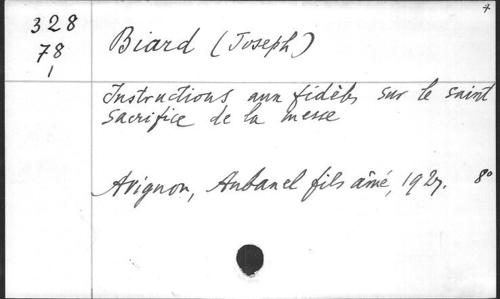 328
78
1
Biard (Joseph)
Instructions aux fidèles sur le saint
sacrifice de la messe
Avignon, Aubanel fils aîné, 1927. 8º